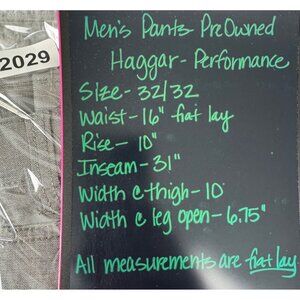 Men's Pants PreOwned
Haggar - Performance
2029
Size - 32/32
Waist - 16" flat lay
Rise - 10"
Inseam - 31"
Width @ thigh - 10"
Width @ leg open - 6.75"
All measurements are flat lay